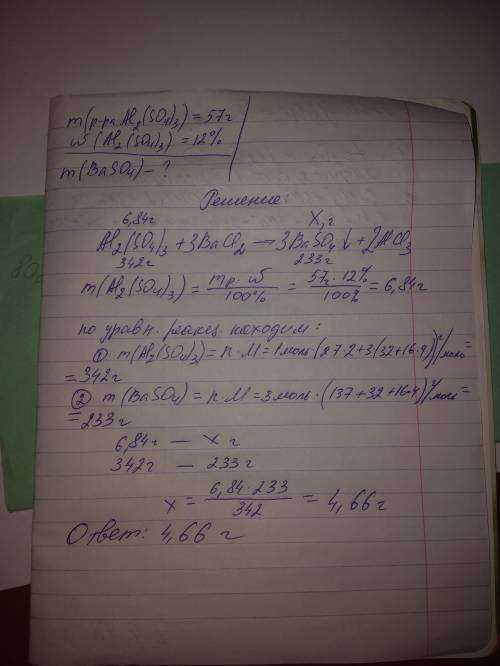 m(р-ра Al₂(SO₄)₃) = 57г
ω(Al₂(SO₄)₃) = 12%
m(BaSO₄) - ?
Решение:
6,84г X, г
Al₂(SO₄)₃ + 3BaCl₂ → 3BaSO₄↓ + 2AlCl₃
342г 233г
m(Al₂(SO₄)₃) = mр·ω/100% = 57г·12%/100% = 6,84г
по уравн. реакц. находим:
① m(Al₂(SO₄)₃) = n·M = 1моль·(27·2+3(32+16·4))г/моль =
= 342г
② m(BaSO₄) = n·M = 3моль·(137+32+16·4)г/моль =
= 233г
6,84г — x г
342г — 233г
x = 6,84·233/342 = 4,66г
Ответ: 4,66 г